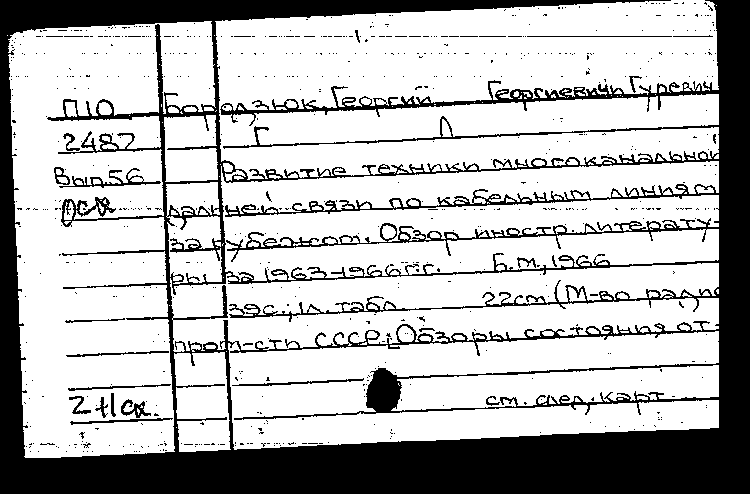 1.
П10 Бородзюк, Георгий Георгиевич и Гуревич
2487 Г Л
Вып.56 Развитие техники многоканальной
дальней связи по кабельным линиям
за рубежом. Обзор иностр. литерату-
ры за 1963-1966 г.г. Б.м., 1966
39с.; ил. табл. 22см (М-во радио
пром-сти СССР; Обзоры состояния от-
2 +1
см. след. карт